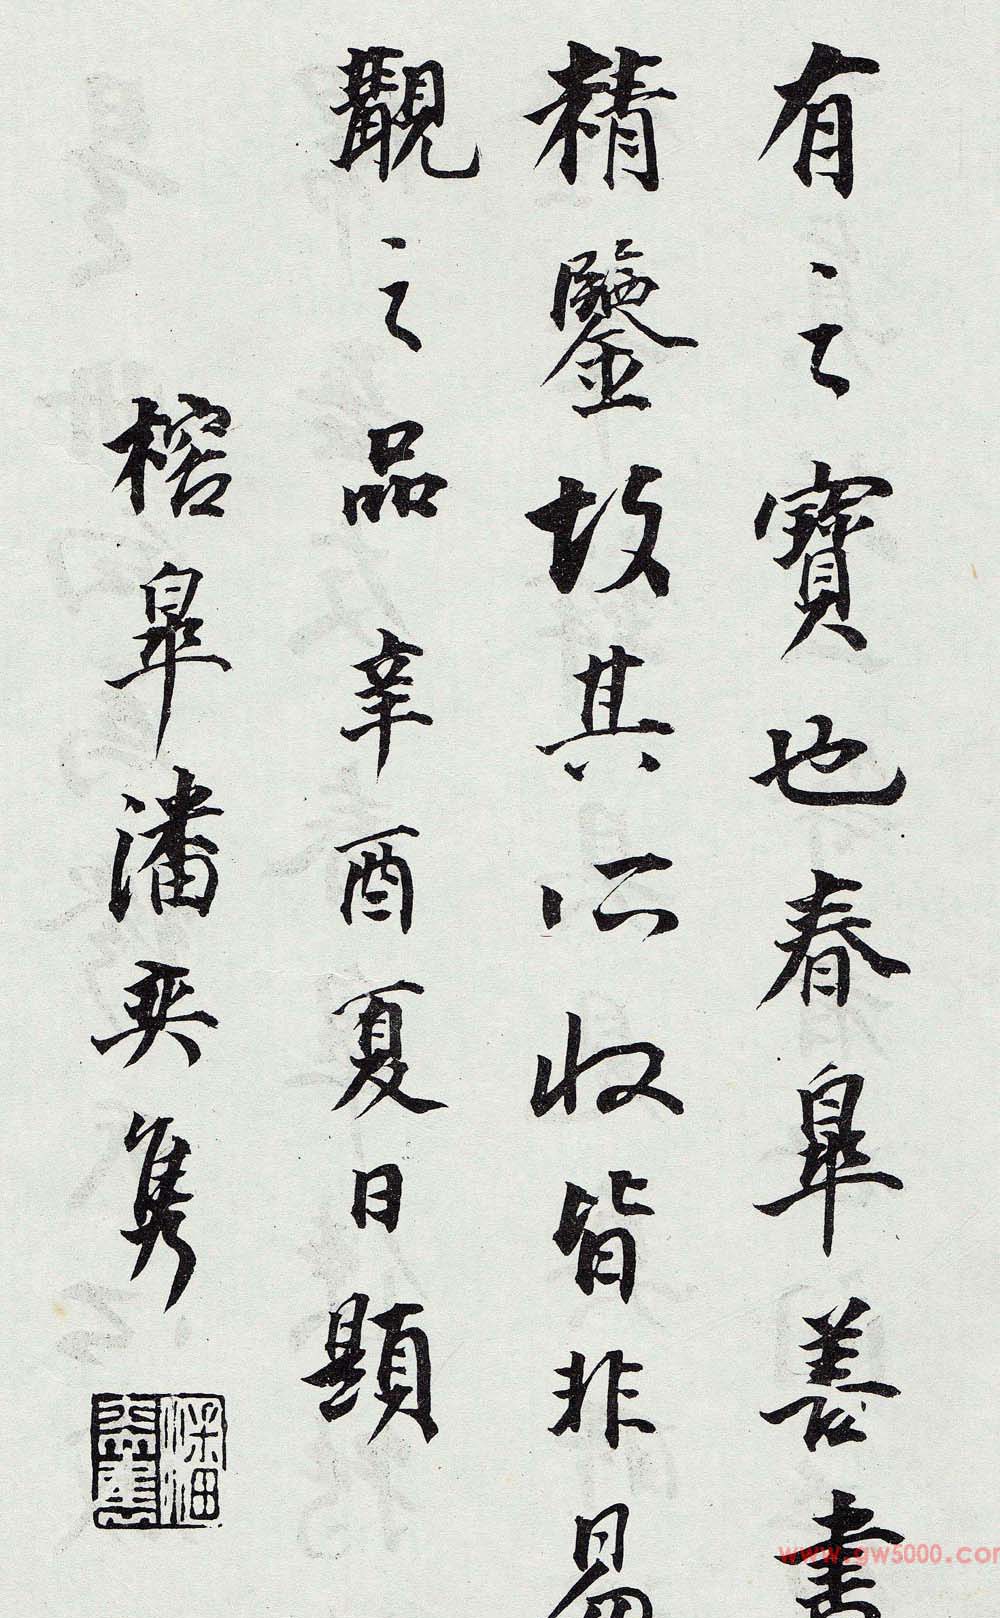 有之寶也春皋善書
精鑒故其所收皆非易
覯之品辛酉夏日題
榕皋潘奕隽
潘奕隽
www.gw5000.com